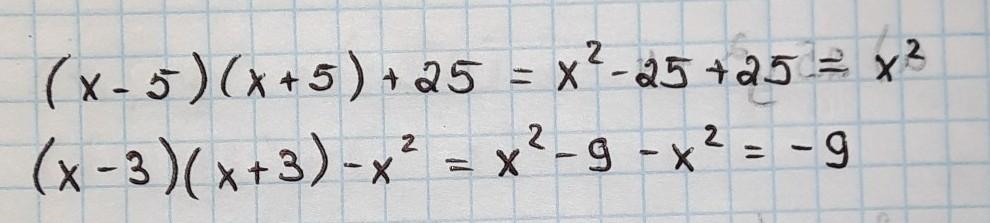 (x - 5)(x + 5) + 25 = x² - 25 + 25 = x²
(x - 3)(x + 3) - x² = x² - 9 - x² = -9